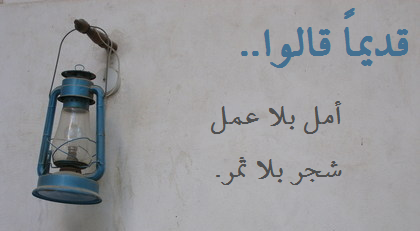 قديماً قالوا..
أمل بلا عمل
شجر بلا ثمر.